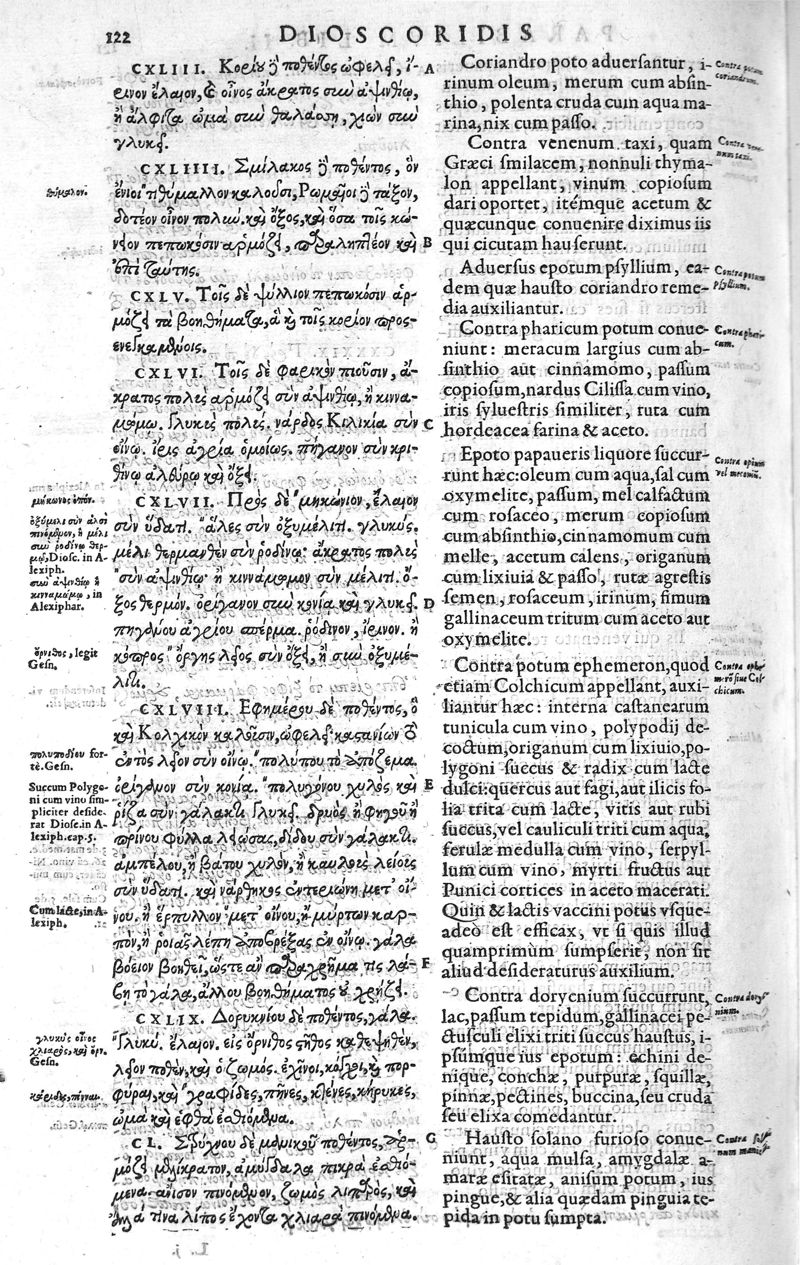 122 DIOSCORIDIS
CXLIII. Κορίου δὲ ποθέντος ὠφελεῖ, ἴ-
ρινον ἔλαιον, καὶ οἶνος ἄκρατος σὺν ἀψινθίῳ,
ἢ ἄλφιτα ὠμὰ σὺν θαλάσσῃ, χιὼν σὺν
γλυκεῖ.
CXLIIII. Σμίλακος δὲ ποθέντος, ὃν
ἔνιοι τιθύμαλλον καλοῦσι, Ῥωμαῖοι δὲ τάξον,
δοτέον οἶνον πολὺν καὶ ὄξος, καὶ ὅσα τοῖς κώ-
νειον πεπωκόσιν ἁρμόζει, παραληπτέον καὶ
ἐπὶ ταύτης.
CXLV. Τοῖς δὲ ψύλλιον πεπωκόσιν ἁρ-
μόζει τὰ βοηθήματα, ἃ καὶ τοῖς κορίον προσ-
ενεγκαμένοις.
CXLVI. Τοῖς δὲ φαρικὸν πιοῦσιν, ἄ-
κρατος πολὺς ἁρμόζει σὺν ἀψινθίῳ, ἢ κιννα-
μώμῳ. γλυκὺς πολὺς. νάρδος Κιλικία σὺν
οἴνῳ. ἶρις ἀγρία ὁμοίως. πήγανον σὺν κρι-
θίνῳ ἀλεύρῳ καὶ ὄξει.
CXLVII. Πρὸς δὲ μηκώνιον, ἔλαιον
σὺν ὕδατι. ἅλες σὺν ὀξυμέλιτι. γλυκύς.
μέλι θερμανθὲν σὺν ῥοδίνῳ. ἄκρατος πολὺς
σὺν ἀψινθίῳ ἢ κιννάμωμον σὺν μέλιτι. ὄ-
ξος θερμόν. ὀρίγανον σὺν κονίᾳ καὶ γλυκεῖ.
πηγάνου ἀγρίου σπέρμα. ῥόδινον, ἴρινον. ἢ
κόπρος ὄρνης λεῖος σὺν ὄξει, ἢ σὺν ὀξυμέ-
λιτι.
CXLVIII. Ἐφημέρου δὲ ποθέντος, ὃ
καὶ Κολχικὸν καλοῦσιν, ὠφελεῖ καστανίων ὁ
ἐντὸς λεῖον σὺν οἴνῳ. πολύπου τὸ ἀπόζεμα.
ὀρίγανον σὺν κονίᾳ. πολυγόνου χυλὸς καὶ
ῥίζα σὺν γάλακτι γλυκεῖ. δρυὸς ἢ φηγοῦ ἢ
πρίνου φύλλα λειώσας, δίδου σὺν γάλακτι.
ἀμπέλου, ἢ βάτου χυλὸν, ἢ καυλοὺς λείους
σὺν ὕδατι. καὶ νάρθηκος ἐντεριώνη μετ᾽ οἴ-
νου. ἢ ἕρπυλλον μετ᾽ οἴνου, ἢ μύρτων καρ-
πὸν, ἢ ῥοιᾶς λέπη ἀποβρέξας ἐν οἴνῳ. γάλα
βόειον βοηθεῖ, ὥστε ἂν παραχρῆμα τις λά-
βῃ τὸ γάλα, ἄλλου βοηθήματος οὐ χρῄζει.
CXLIX. Δορυκνίου δὲ ποθέντος, γάλα.
γλυκύ. ἔλαιον. εἰς ὄρνιθος στῆθος καθεψηθὲν,
λεῖον ποθὲν, καὶ ὁ ζωμός. ἐχῖνοι, κόγχοι, καὶ πορ-
φύραι, καὶ γραφίδες, πῆνες, κτένες, κήρυκες,
ὠμὰ καὶ ἑφθὰ ἐσθιόμενα.
CL. Στρύχνου δὲ μανικοῦ ποθέντος, ἁρ-
μόζει μελίκρατον, ἀμύγδαλα πικρὰ ἐσθιό-
μενα. ἄνισον πινόμενον, ζωμὸς λιπαρὸς, καὶ
ἄλλά τινα λίπος ἔχοντα χλιαρὰ πινόμενα.
θύμαλον.
μήκωνος ὀπὸν.
ὀξύμελι σὺν ἁλσὶ
πινόμενον, ἢ μέλι
σὺν ῥοδίνῳ θερ-
μῷ, Diosc. in A-
lexiph.
σὺν ἀψινθίῳ ἢ
κιναμώμῳ, in
Alexiphar.
ὄρνιθος, legit
Gesn.
πολυποδίου for-
tè. Gesn.
Succum Polygo-
ni cum vino sim-
pliciter deside-
rat Diosc. in A-
lexiph. cap. 5.
Cum lacte, in A-
lexiph.
γλυκὺς οἶνος
χλιαρὸς, καὶ ὄρν.
Gesn.
καρίδες, πίνναι.
A
B
C
D
E
F
G
Coriandro poto aduersantur, i-
rinum oleum, merum cum absin-
thio, polenta cruda cum aqua ma-
rina, nix cum passo.
Contra venenum taxi, quam
Græci smilacem, nonnuli thyma-
lon appellant, vinum copiosum
dari oportet, itémque acetum &
quæcunque conuenire diximus iis
qui cicutam hauserunt.
Aduersus epotum psyllium, ea-
dem quæ hausto coriandro reme-
dia auxiliantur.
Contra pharicum potum conue-
niunt: meracum largius cum ab-
sinthio aut cinnamomo, passum
copiosum, nardus Cilissa cum vino,
iris syluestris similiter, ruta cum
hordeacea farina & aceto.
Epoto papaueris liquore succur-
runt hæc: oleum cum aqua, sal cum
oxymelite, passum, mel calfactum
cum rosaceo, merum copiosum
cum absinthio, cinnamomum cum
melle, acetum calens, origanum
cum lixiuia & passo, rutæ agrestis
semen, rosaceum, irinum, fimum
gallinaceum tritum cum aceto aut
oxymelite.
Contra potum ephemeron, quod
etiam Colchicum appellant, auxi-
liantur hæc: interna castanearum
tunicula cum vino, polypodij de-
coctum, origanum cum lixiuio, po-
lygoni succus & radix cum lacte
dulci: quercus aut fagi, aut ilicis fo-
lia trita cum lacte, vitis aut rubi
succus, vel cauliculi triti cum aqua,
ferulæ medulla cum vino, serpyl-
lum cum vino, myrti fructus aut
Punici cortices in aceto macerati.
Quin & lactis vaccini potus vsque-
adeò est efficax, vt si quis illud
quamprimùm sumpserit, non sit
aliud desideraturus auxilium.
Contra dorycnium succurrunt,
lac, passum tepidum, gallinacei pe-
ctusculi elixi triti succus haustus, i-
psúmque ius epotum: echini de-
nique, conchæ, purpuræ, squillæ,
pinnæ, pectines, buccina, seu cruda
seu elixa comedantur.
Hausto solano furioso conue-
niunt, aqua mulsa, amygdalæ a-
maræ esitatæ, anisum potum, ius
pingue, & alia quædam pinguia te-
pida in potu sumpta.
Contra potum
coriandrum.
Contra vene-
num taxi.
Contra potum
psyllium.
Contra phari-
cum.
Contra opium
vel meconium.
Contra ephe-
merō siue Col-
chicum.
Contra doryc-
nium.
Contra sola-
num manic.
L. j.